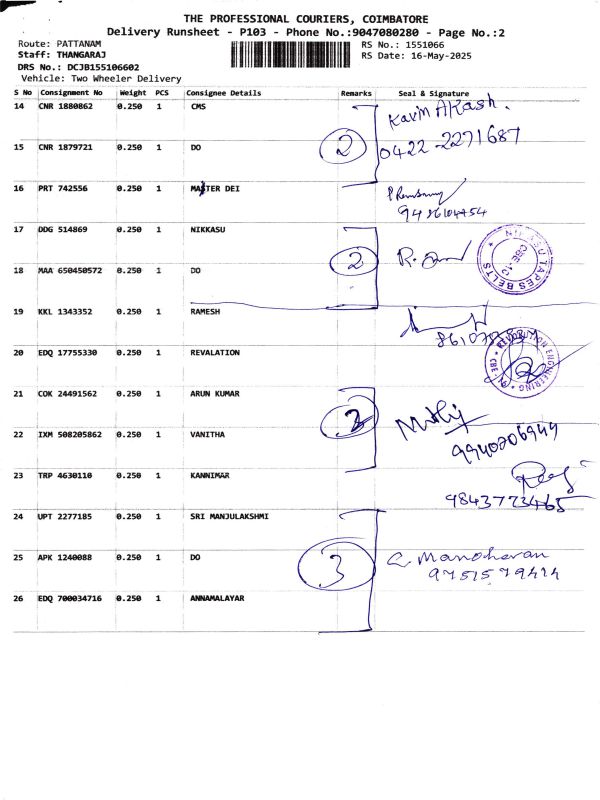 THE PROFESSIONAL COURIERS, COIMBATORE
Delivery Runsheet - P103 - Phone No.:9047080280 - Page No.:2
Route: PATTANAM
RS No.: 1551066
Staff: THANGARAJ
RS Date: 16-May-2025
DRS No.: DCJB155106602
Vehicle: Two Wheeler Delivery
S No Consignment No Weight PCS Consignee Details Remarks Seal & Signature
14 CNR 1880862 0.250 1 CMS
Kavin Akash.
15 CNR 1879721 0.250 1 DO 2 0422 2271687
16 PRT 742556 0.250 1 MASTER DEI
9486104454
17 DDG 514869 0.250 1 NIKKASU
NIKASU TAPES BELTS
CBE-10
18 MAA 650450572 0.250 1 DO 2
19 KKL 1343352 0.250 1 RAMESH
20 EDQ 17755330 0.250 1 REVALATION
ENGINEERING
CBE
21 COK 24491562 0.250 1 ARUN KUMAR
22 IXM 508205862 0.250 1 VANITHA
9940206949
23 TRP 4630110 0.250 1 KANNIMAR
9843773465
24 UPT 2277185 0.250 1 SRI MANJULAKSHMI
25 APK 1240088 0.250 1 DO 3 C. Manoharan
9751579414
26 EDQ 700034716 0.250 1 ANNAMALAYAR